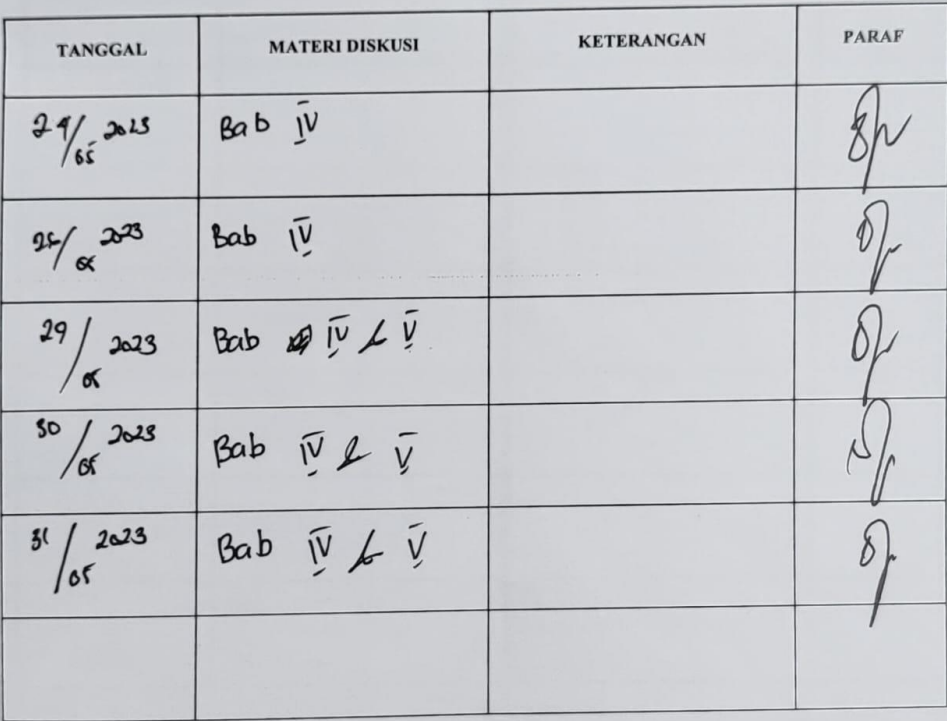 TANGGAL MATERI DISKUSI KETERANGAN PARAF
24/05 2023 Bab IV
25/05 2023 Bab IV
29/05 2023 Bab IV & V
30/05 2023 Bab IV & V
31/05 2023 Bab IV & V